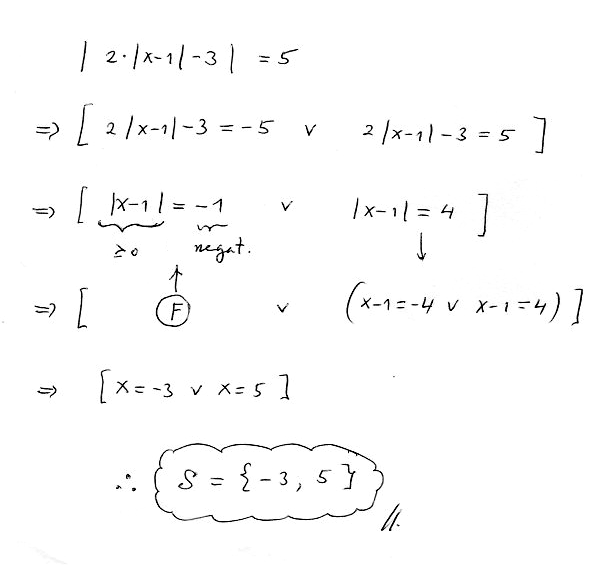 | 2·|x-1|-3 | = 5
=> [ 2|x-1|-3 = -5 ∨ 2|x-1|-3 = 5 ]
=> [ |x-1| = -1 ∨ |x-1| = 4 ]
≥0 negat. ↓
↑
=> [ F ∨ (x-1=-4 ∨ x-1=4) ]
=> [x=-3 ∨ x=5]
∴ S = {-3, 5} //.